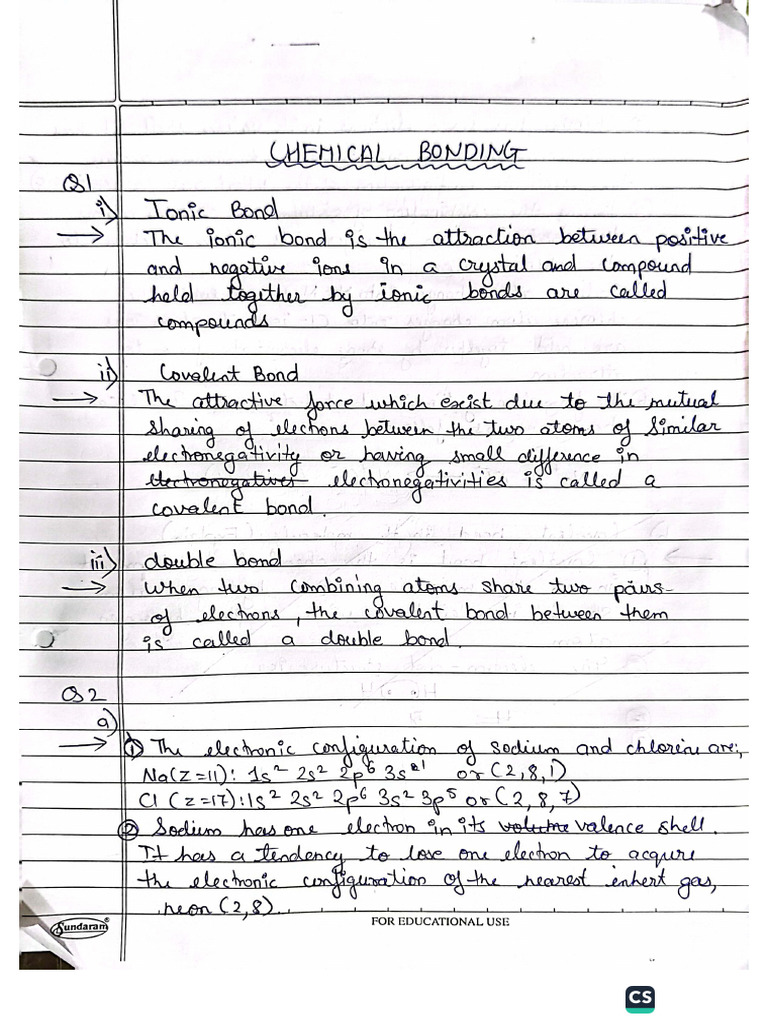 CHEMICAL BONDING
Q1
i) Ionic Bond
→ The ionic bond is the attraction between positive
and negative ions in a crystal and compound
held together by ionic bonds are called
compounds
ii) Covalent Bond
→ The attractive force which exist due to the mutual
sharing of elections between the two atoms of similar
electronegativity or having small difference in
electronegatives electronegativities is called a
covalent bond.
iii) double bond
→ When two combining atoms share two pairs
of electrons, the covalent bond between them
is called a double bond.
Q2
a)
→ ① The electronic configuration of sodium and chlorine are:,
Na(Z=11): 1s² 2s² 2p⁶ 3s¹ or (2,8,1)
Cl (Z=17): 1s² 2s² 2p⁶ 3s² 3p⁵ or (2,8,7)
② Sodium has one electron in its volume valence shell.
It has a tendency to lose one electron to acqure
the electronic configuration of the nearest inhert gas,
neon (2,8).
Sundaram®
FOR EDUCATIONAL USE
CS